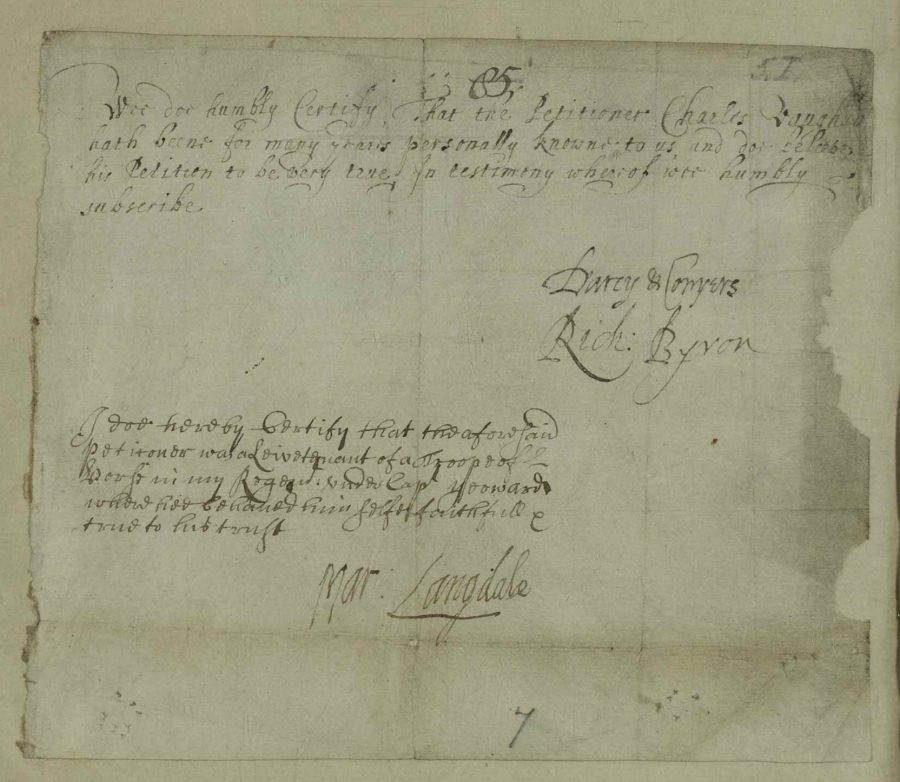 85
51
Wee doe humbly Certify That the Petitioner Charles Vaughan
hath beene for many years personally knowne to us and doe beleeve
his Petition to be very true, In testimony whereof wee humbly
subscribe
Darcy & Conyers
Rich: Byron
I doe hereby Certify that the aforesaid
peticoner was a Leivetenant of a Troope of
Horse in my Regemt: under Capt Yeoward
where hee behaued himselfe faithfull &
true to his trust
Mar: Langdale
7